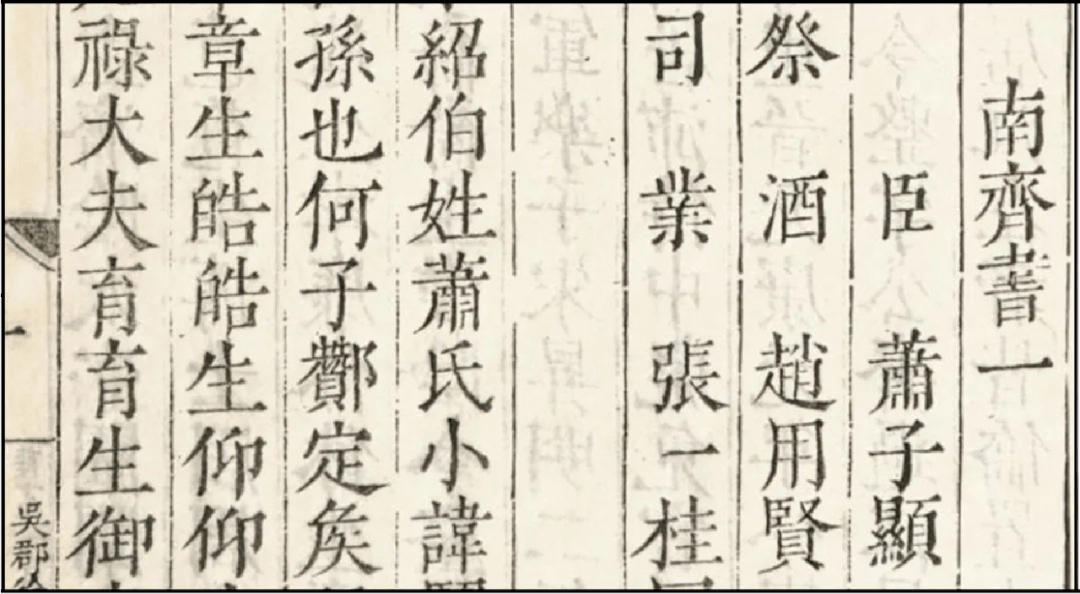 南齊書一
臣 蕭子顯
祭 酒 趙用賢
司 業 張一桂
紹伯姓蕭氏小諱
孫也何子酇定矦
章生皓皓生仰仰
祿大夫育育生御
一
吳郡